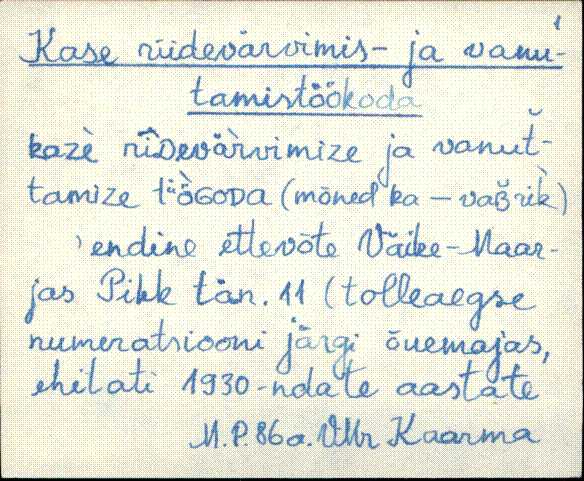 1
Kase riidevärvimis- ja vanu-
tamistöökoda
kazè rîDevàrvimize ja vanut̆-
tamize tüö̀GODA (mõned ka – vaʙ̆rìk)
' endine ettevõte Väike-Maar-
jas Pikk tän. 11 (tolleaegse
numeratsiooni järgi õuemajas,
ehitati 1930-ndate aastate
M.P. 86 a. VMr Kaarma